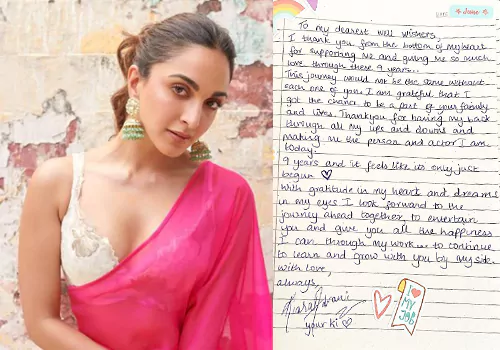 June
To my dearest well wishers,
I thank you from the bottom of my heart
for supporting me and giving me so much
love through these 9 years...
This journey would not be the same without
each one of you. I am grateful that I
got the chance to be a part of your family
and lives. Thankyou for having my back
through all my ups and downs and
making me the person and actor I am
today.
9 years and it feels like its only just
begun ♡
With gratitude in my heart and dreams
in my eyes I look forward to the
journey ahead together, to entertain
you and give you all the happiness
I can through my work... to continue
to learn and grow with you by my side.
with love,
always,
Kiara Advani
your ki ♡
I ♥
MY
JOB